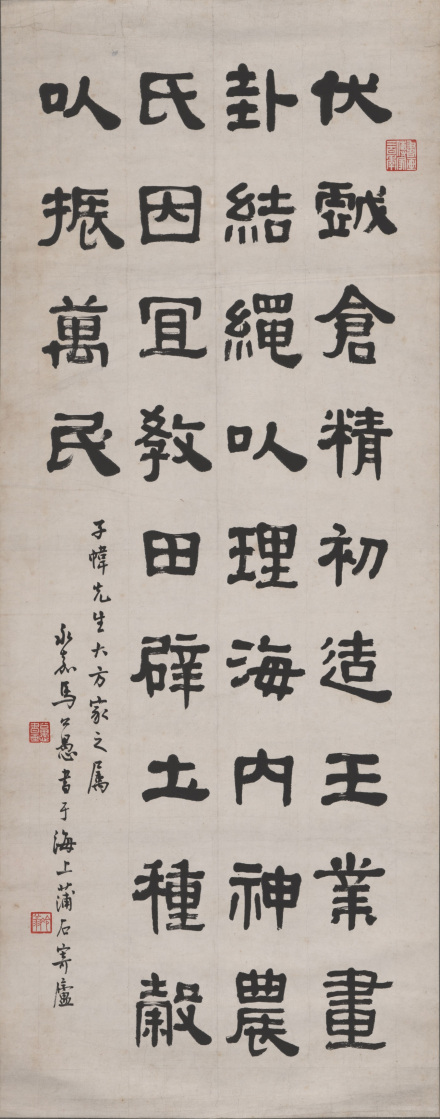 伏戲倉精初造王業畫
卦結繩㕥理海内神農
氏因冝教田辟土種穀
㕥振萬民
子幃先生大方家之属
永嘉馬公愚書于海上蒲石寄廬